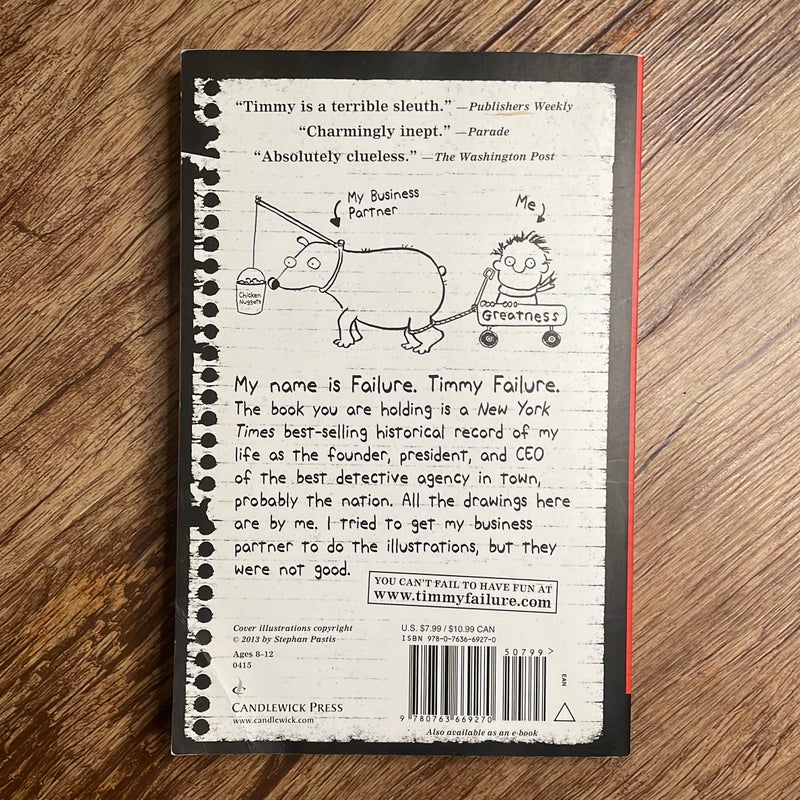 “Timmy is a terrible sleuth.” —Publishers Weekly
“Charmingly inept.” —Parade
“Absolutely clueless.” —The Washington Post
My Business
Partner
Me
Chicken
Nuggets
Greatness
My name is Failure. Timmy Failure.
The book you are holding is a New York
Times best-selling historical record of my
life as the founder, president, and CEO
of the best detective agency in town,
probably the nation. All the drawings here
are by me. I tried to get my business
partner to do the illustrations, but they
were not good.
YOU CAN'T FAIL TO HAVE FUN AT
www.timmyfailure.com
Cover illustrations copyright
© 2013 by Stephan Pastis
Ages 8–12
0415
CANDLEWICK PRESS
www.candlewick.com
U.S. $7.99 / $10.99 CAN
ISBN 978-0-7636-6927-0
50799>
EAN
9 780763 669270
Also available as an e-book